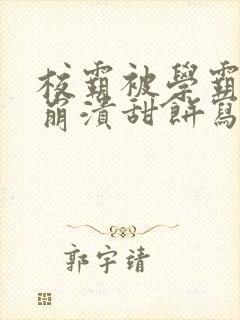 校霸被學霸
崩潰甜餅寫
郭宇靖